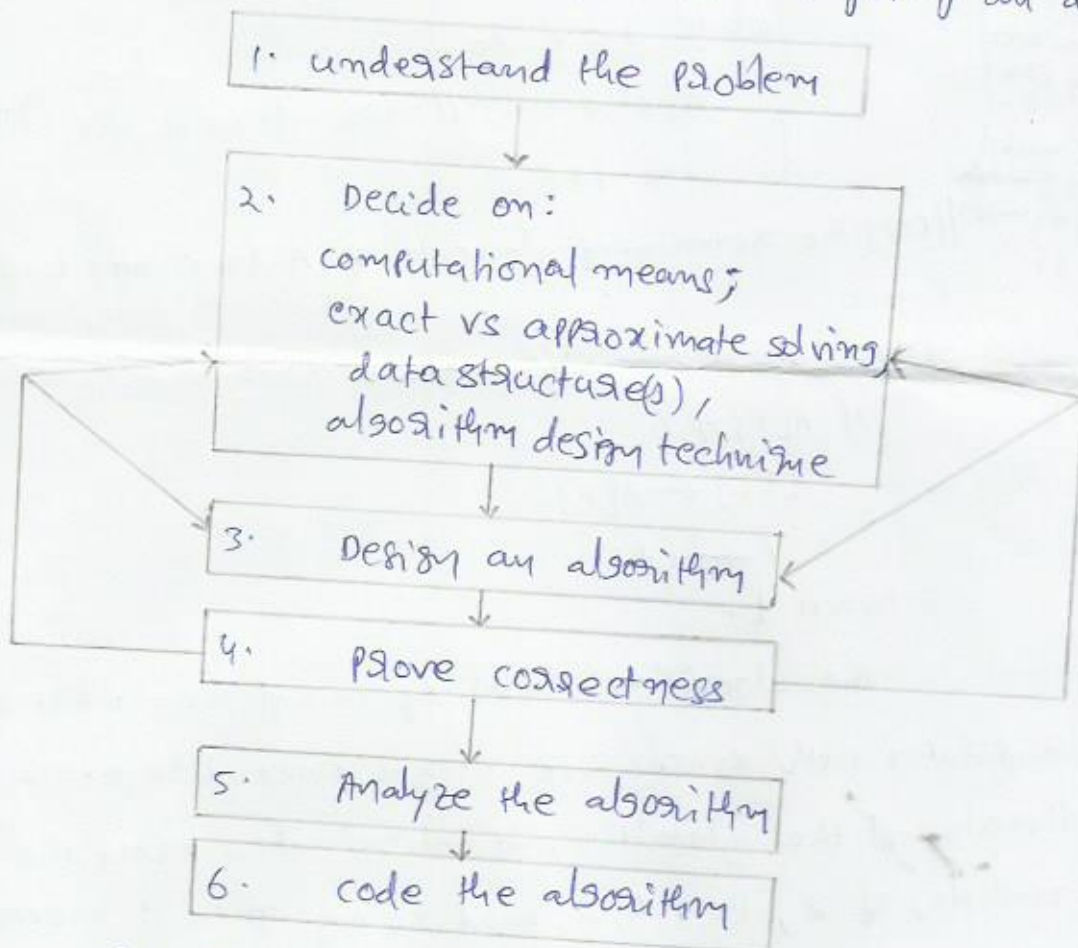 1. understand the problem
2. Decide on:
computational means;
exact vs approximate solving,
data structure(s),
algorithm design technique
3. Design an algorithm
4. prove correctness
5. Analyze the algorithm
6. code the algorithm